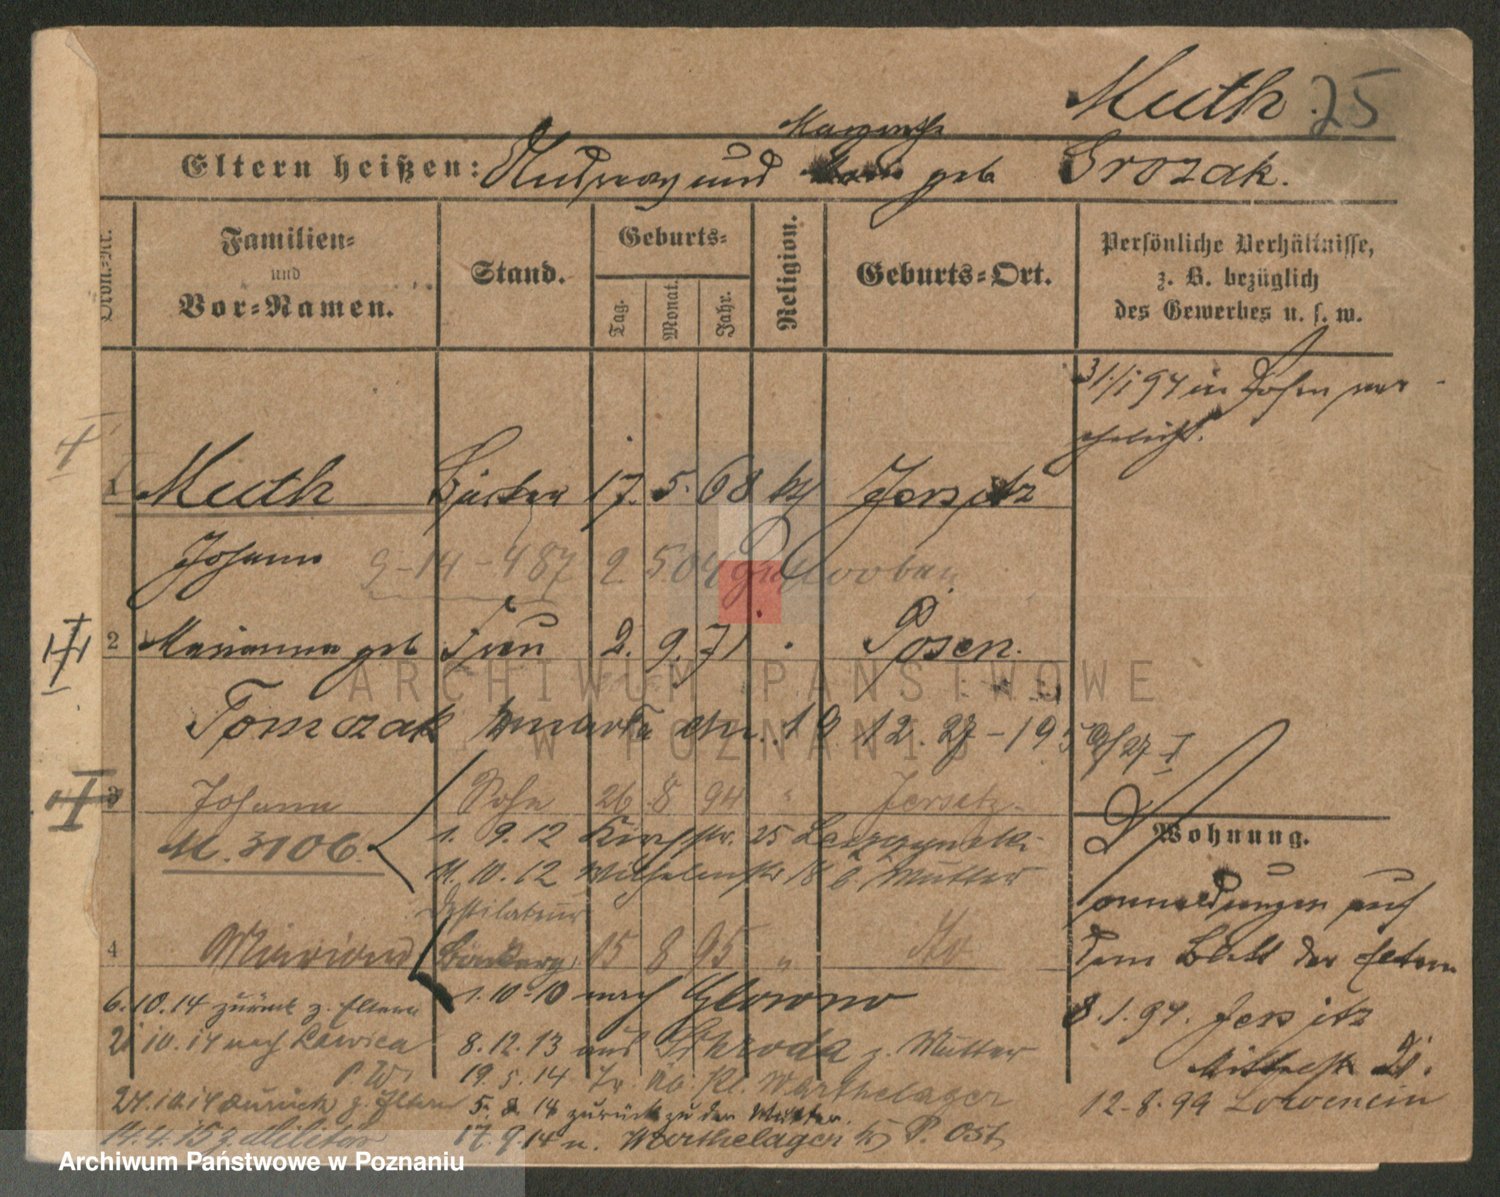 Muth 25
Margarethe
Eltern heißen: Andreas und geb Grozak.
Ordn.-Nr.
Familien- und Vor-Namen.
Stand.
Geburts-
Tag. Monat. Jahr.
Religion.
Geburts-Ort.
Persönliche Verhältnisse, z. B. bezüglich des Gewerbes u. s. w.
31/1 94 in Posen ver-
ehelicht.
1 Muth 17. 5. 68 kth Jersitz
Johann 9-14-487 2. 5.04
2 Marianna geb Frau 2. 9. 71 " Posen.
Tomczak zmarła dn. 19 12. 27 - 19
3 Johann Sohn 26 8 94 " Jersitz
M. 3106. 1. 9. 12 Kirchstr. 25
11. 10. 12 Wilhelmstr 18 b. Mutter
Destillateur
4 Marian 15 8 95 " do
1.10.10 nach Glowno
6.10.14 zurück z. Eltern
21 10.14 nach Lawica 8.12.13 aus Schroda z. Mutter
P.W. 19.5.14 Warthelager
24.10.14 zurück z. Eltern 5. 8. 14 zurück zu der Mutter.
14.4.15 z. Militär 17.9.14 n. Warthelager P. Ost
Wohnung.
anmeldungen auf
dem Blatt der Eltern
8.1.97. Jersitz
Mittelstr 21.
12.8.99
ARCHIWUM PAŃSTWOWE
W POZNANIU
Archiwum Państwowe w Poznaniu